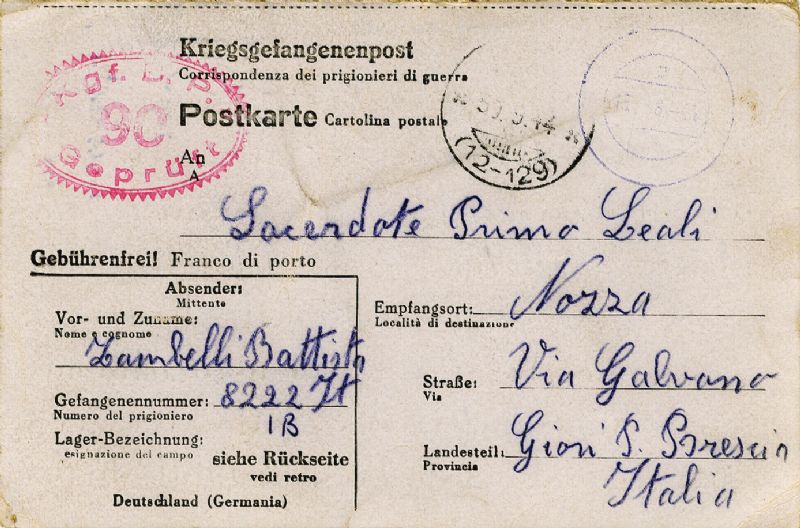 Kriegsgefangenenpost
Corrispondenza dei prigionieri di guerra
Postkarte Cartolina postale
Kgf. L. P.
90
Geprüft
(12-129)
An
A
Sacerdote Primo Leali
Gebührenfrei! Franco di porto
Absender:
Mittente
Vor- und Zuname:
Nome e cognome
Zambelli Battista
Gefangenennummer: 8222 It
Numero del prigioniero
1B
Lager-Bezeichnung:
esignazione del campo
siehe Rückseite
vedi retro
Deutschland (Germania)
Empfangsort: Nozza
Località di destinazione
Straße: Via Galvano
Via
Landesteil: P. Brescia
Provincia
Italia